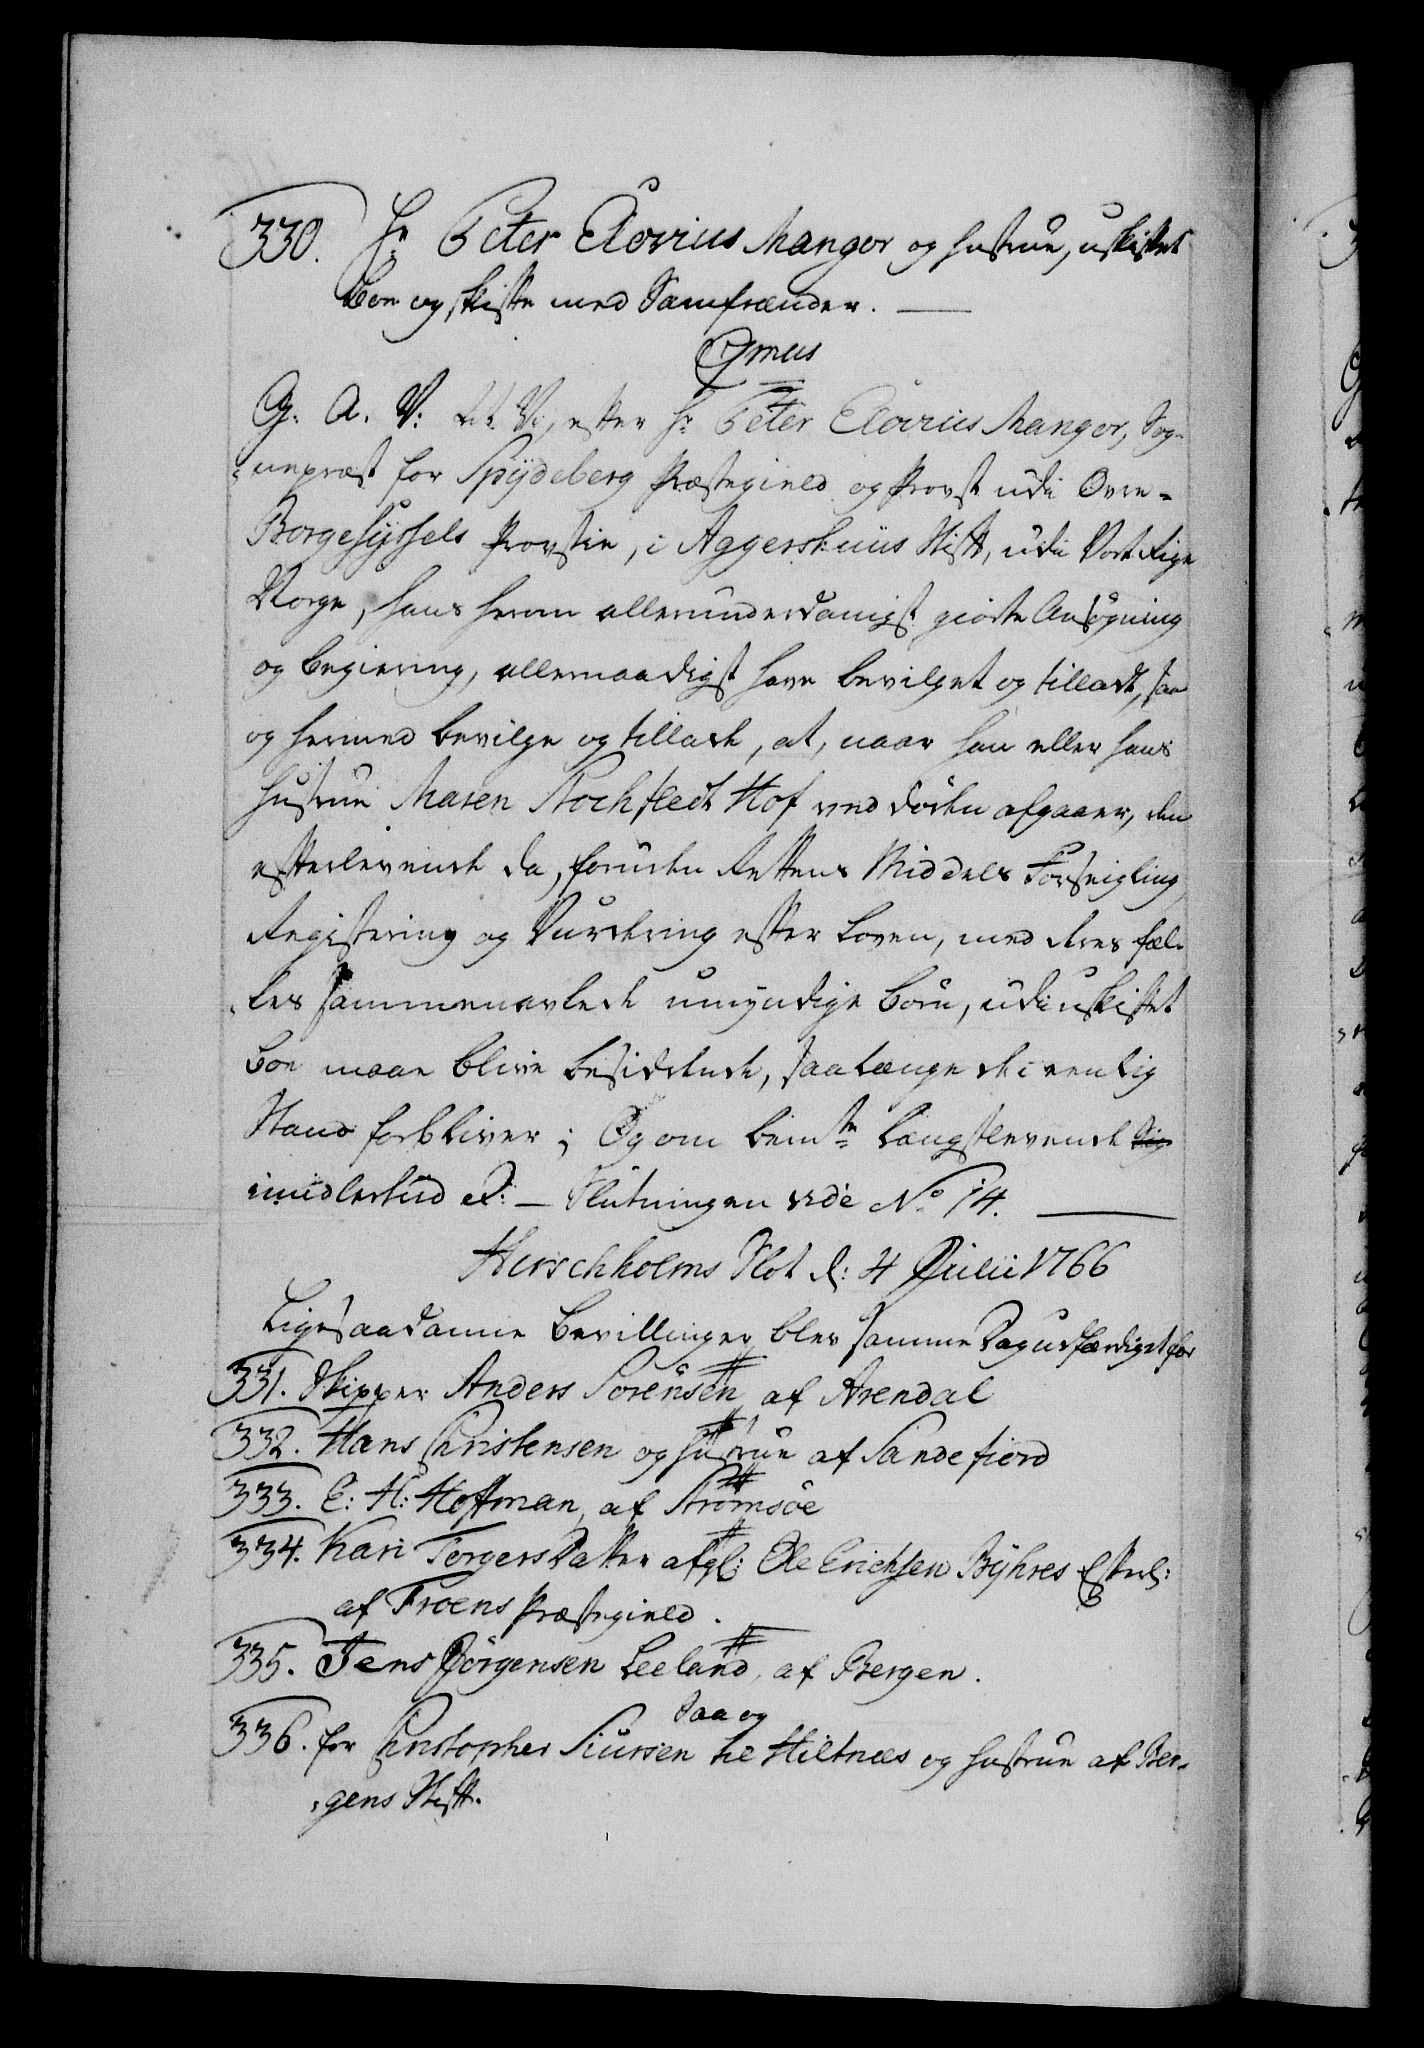 330. Hr Peter Elovius Mangor og Hustrue, uskiftet
Boe og skifte med Samfrænder. —
Cfmus
G. A. V: at Vi, efter Hr Peter Elovius Mangor, Sog-
nepræst for Spydeberg Præstegield og Provst udi Ovre-
Borgesyssels Provstie, i Aggershuus Stift, udi Vort Rige
Norge, hans herom allerunderdanigst giorte Ansøgning
og Begiering, allernaadigst have bevilget og tilladt, saa
og hermed bevilge og tillade, at, naar han eller hans
Hustrue Maren Stochfledt Hof ved døden afgaaer, den
efterlevende da, foruden Rettens Middels Forseigling,
Registering og Vurdering efter Loven, med deres fæl-
les sammenavlede umyndige Børn, udi uskiftet
Boe maae blive besiddende, saalænge de i eenlig
Stand forbliver; Og om bemte Længstlevende sig
imidlertid &: — Slutningen vide No 14. —
Hirschholms Slot d: 4 Julii 1766
Ligesaadanne Bevillinger blev samme Dag udfærdiget for
331. Skipper Anders Sorensen af Arendal
332. Hans Christensen og Hustrue af Sandefiord
333. E: H: Hoffman, af Strømsøe
334. Kari TorgersDatter afgl: Ole Erichsen Byhres Efterl:
af Froens Præstegield.
335. Jens Jörgensen Leeland, af Bergen.
Saa og
336. for Christopher Siursen til Hiltnes og Hustrue af Ber-
gens Stift.